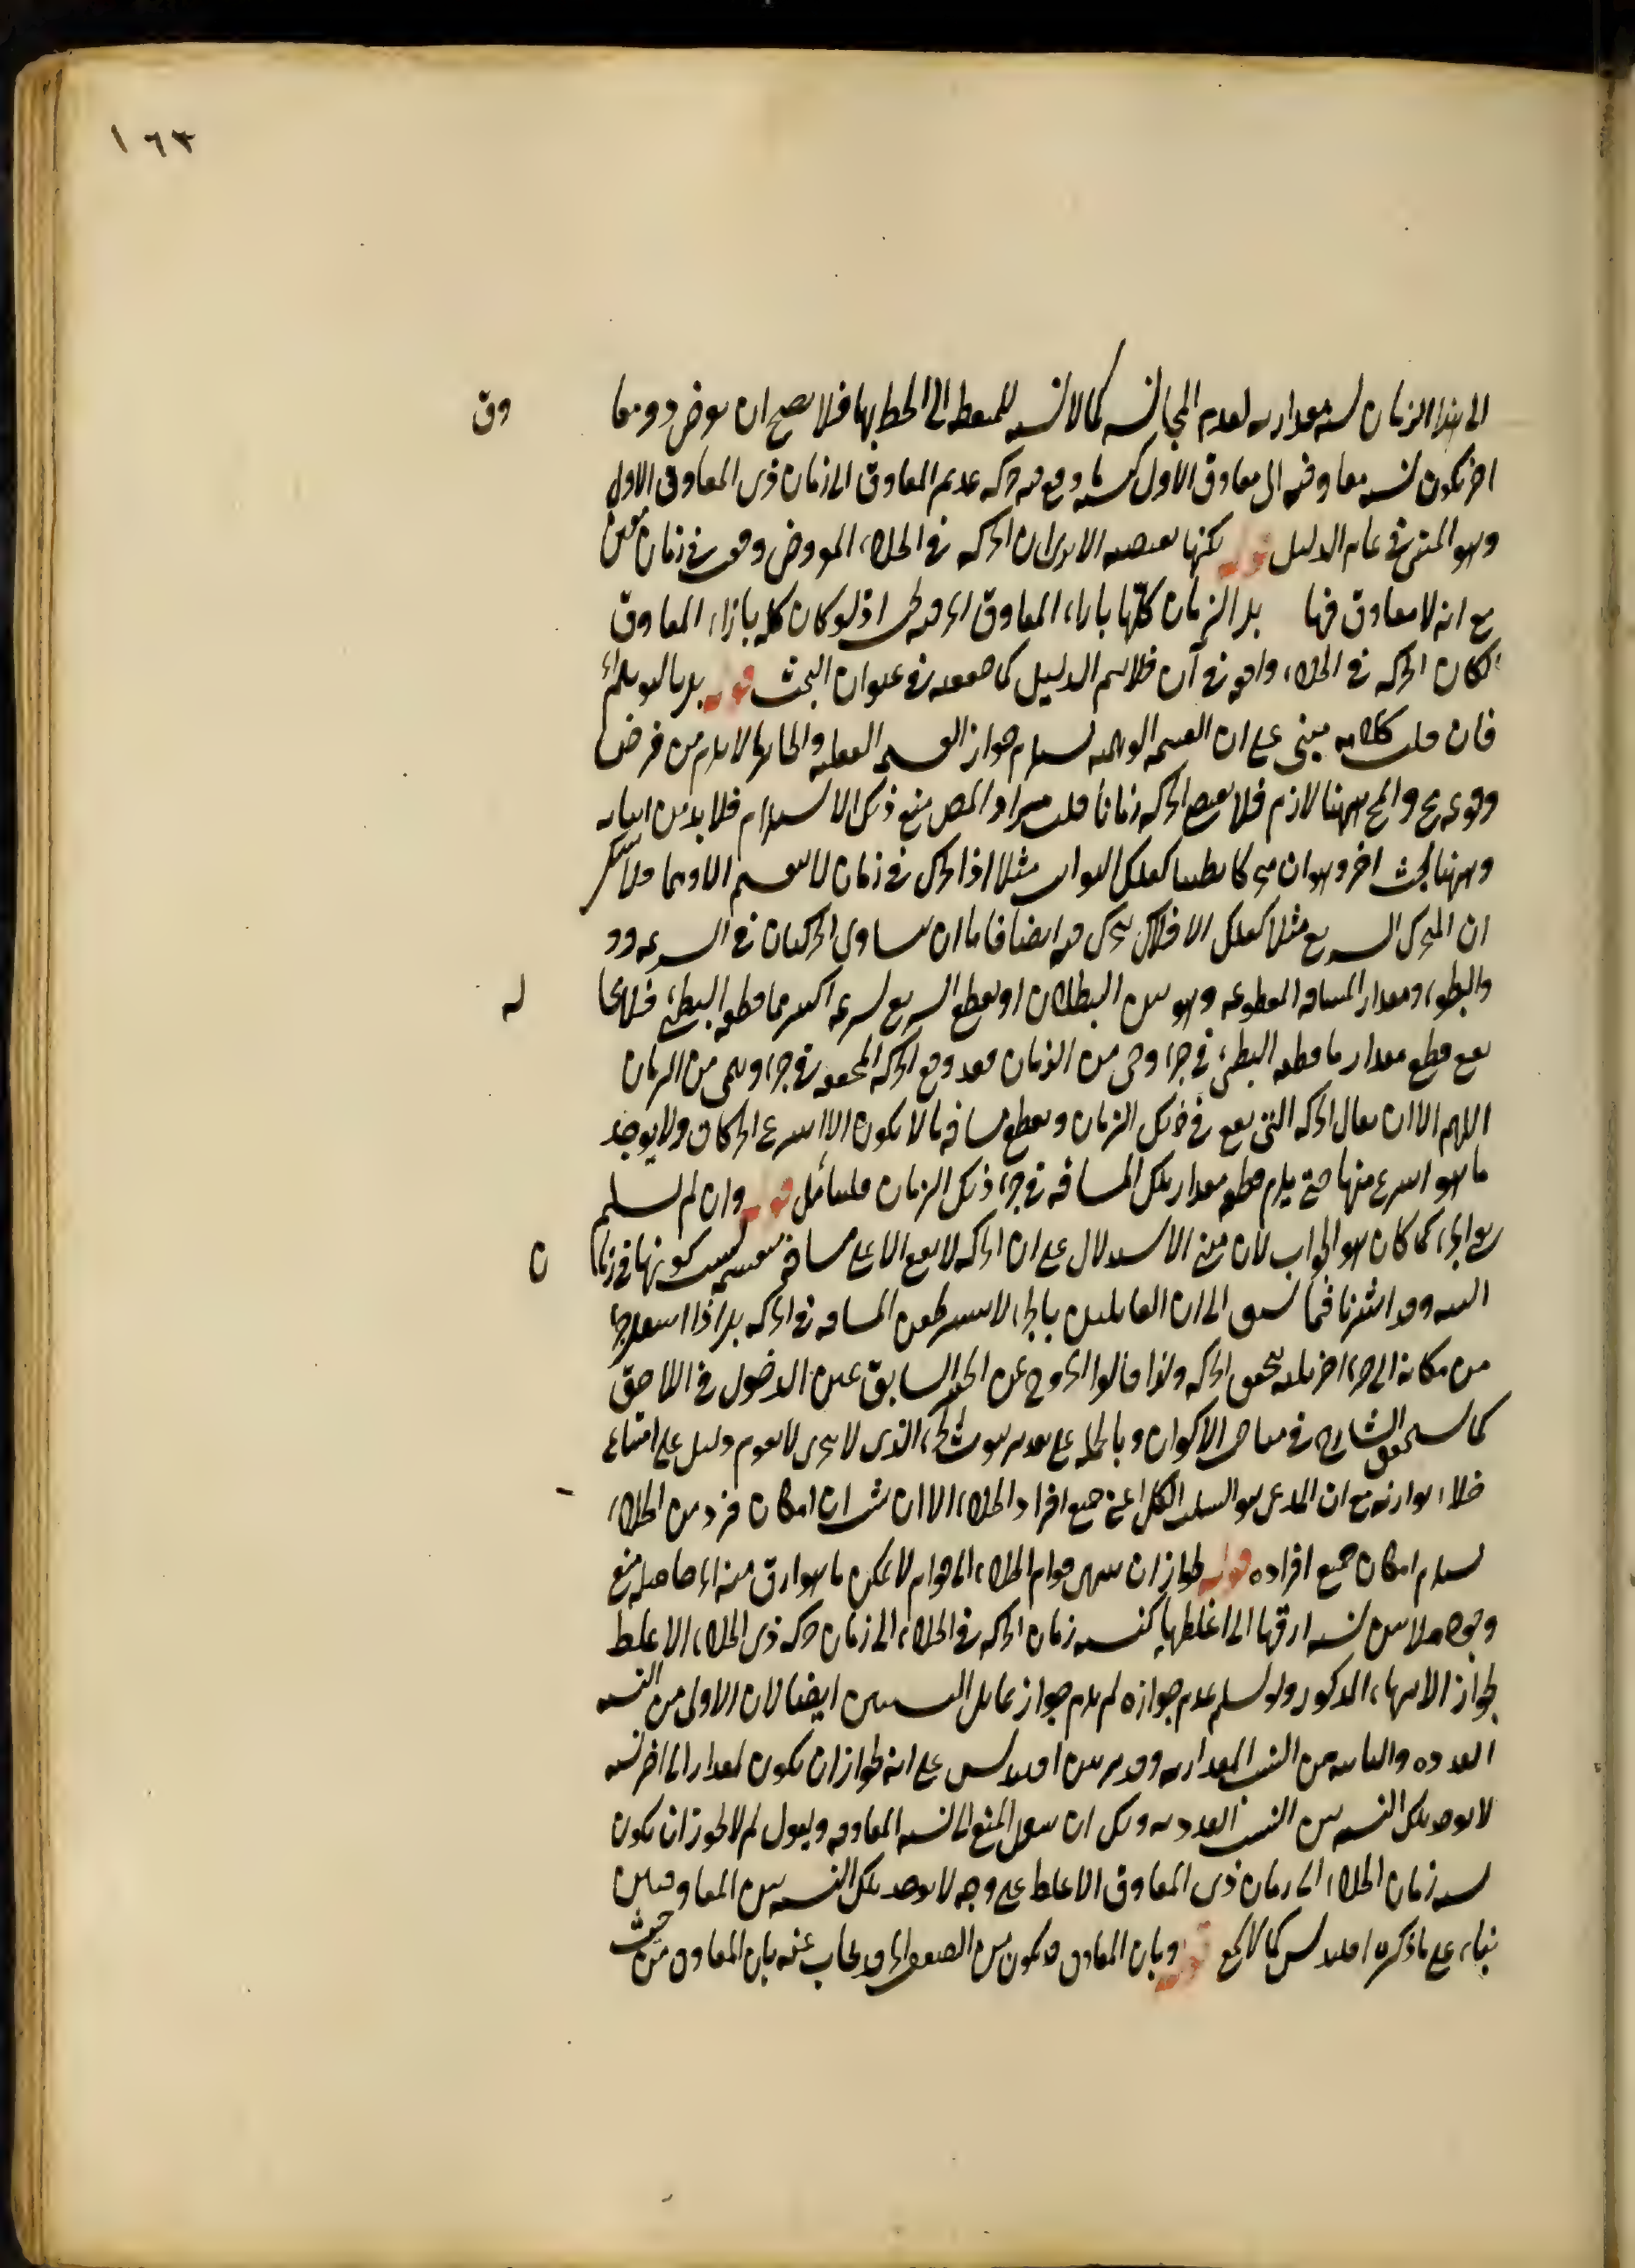 ١٦٣
الى هذا الزمان نسبة مقدارية لعدم المجانسة كما لا نسبة للنقطة الى الخط بها فلا يصح ان يعرض ذو معا وق
اخر تكون نسبة معاوقته الى معاوق الاول كنسبة ما وقع فيه حركة عديم المعاوق الى زمان ذى المعاوق الاول
وهو المبنى في تمام الدليل قوله لكنها تقتضيه الا يرى ان الحركة في الخلاء المفروض وقعت في زمان معين
مع انه لا معاوق فيها بل الزمان كلها بازاء المعاوق اذ لو كان كله بازاء المعاوق
لكان الحركة في الخلاء واقعة في آن فلا يتم الدليل كما حققه في عنوان البحث قوله
فان قلت كلامه مبنى على ان القسمة الوهمية تستلزم جواز القسمة الفعلية والجائز ما لا يلزم من فرض
وقوعه مح والمح ههنا لازم فلا تقتضى الحركة زمانا قلت مراد المص منع ذلك الاستلزام فلا بد من اثباته
وههنا بحث اخر وهو ان متحركا بطيئا كفلك الثوابت مثلا اذا تحرك في زمان لا ينقسم الا وهما فلا شك
ان المتحرك السريع مثلا كفلك الافلاك يتحرك فيه ايضا فاما ان يتساوى الحركتان في السرعة وو
والبطوء ومقدار المسافة المقطوعة وهو بين البطلان او يقطع السريع لسرعته اكثر مما قطعه البطئ فلا محا له
يقع قطع مقدار ما قطعه البطئ في جزء وهمى من الزمان فقد وقع الحركة المحققة في جزء وهمى من الزمان
اللهم الا ان يقال الحركة التى تقع في ذلك الزمان وتقطع مسافة ما لا يكون الا اسرع الحركات ولا يوجد
ما هو اسرع منها حتى يلزم قطع مقدار تلك المسافة في جزء ذلك الزمان فليتأمل قوله وان لم نسلم
الجزء كما كان هو الجواب لان مبنى الاستدلال على ان الحركة لا تقع الا على مسافة منقسمة كونها في زما ن
البتة وقد اشرنا فيما سبق الى ان القائلين بالجزء لا يشترطون المسافة في الحركة بل اذا انتقل جزء
من مكانه الى جزء اخر يليه تحقق الحركة ولذا قالوا الخروج عن الحيز السابق عين الدخول في اللاحق
كما سيحقق الشارح في مباحث الاكوان وبالجملة على تقدير ثبوت الجزء الذى لا يتجزى لا يقوم دليل على امتناع
خلاء يوازيه مع ان المدعى هو السلب الكلى اعنى جميع افراد الخلاء الا ان يثبت ان امكان فرد من الخلاء
يستلزم امكان جميع افراده قوله لجواز ان ينتهى قوام الخلاء الى قوام لا يمكن ما هو ارق منه اى حاصله منع
وجود ملائين نسبة ارقها الى اغلظها كنسبة زمان الحركة في الخلاء الى زمان حركة ذى الخلاء الاغلظ
لجواز الانتهاء المذكور ولو سلم عدم جوازه لم يلزم جواز تماثل النسبتين ايضا لان الاولى من النسبة
العددية والثانية من النسب المقدارية وقد برهن اقليدس على انه لجواز ان يكون لمقدار الى اخر نسبة
لا يوجد تلك النسبة بين النسب العددية ويمكن ان ينقل المنع الى نسبة المعاوقة ويقول لم لا يجوز ان يكون
نسبة زمان الخلاء الى زمان ذى المعاوق الاغلظ على وجه لا يوجد تلك النسبة بين المعاوقين
بناء على ما ذكره اقليدس كما لا يخفى قوله وبان المعاوق قد يكون من الضعف الخ وقد يجاب عنه بان المعاوق من حيث